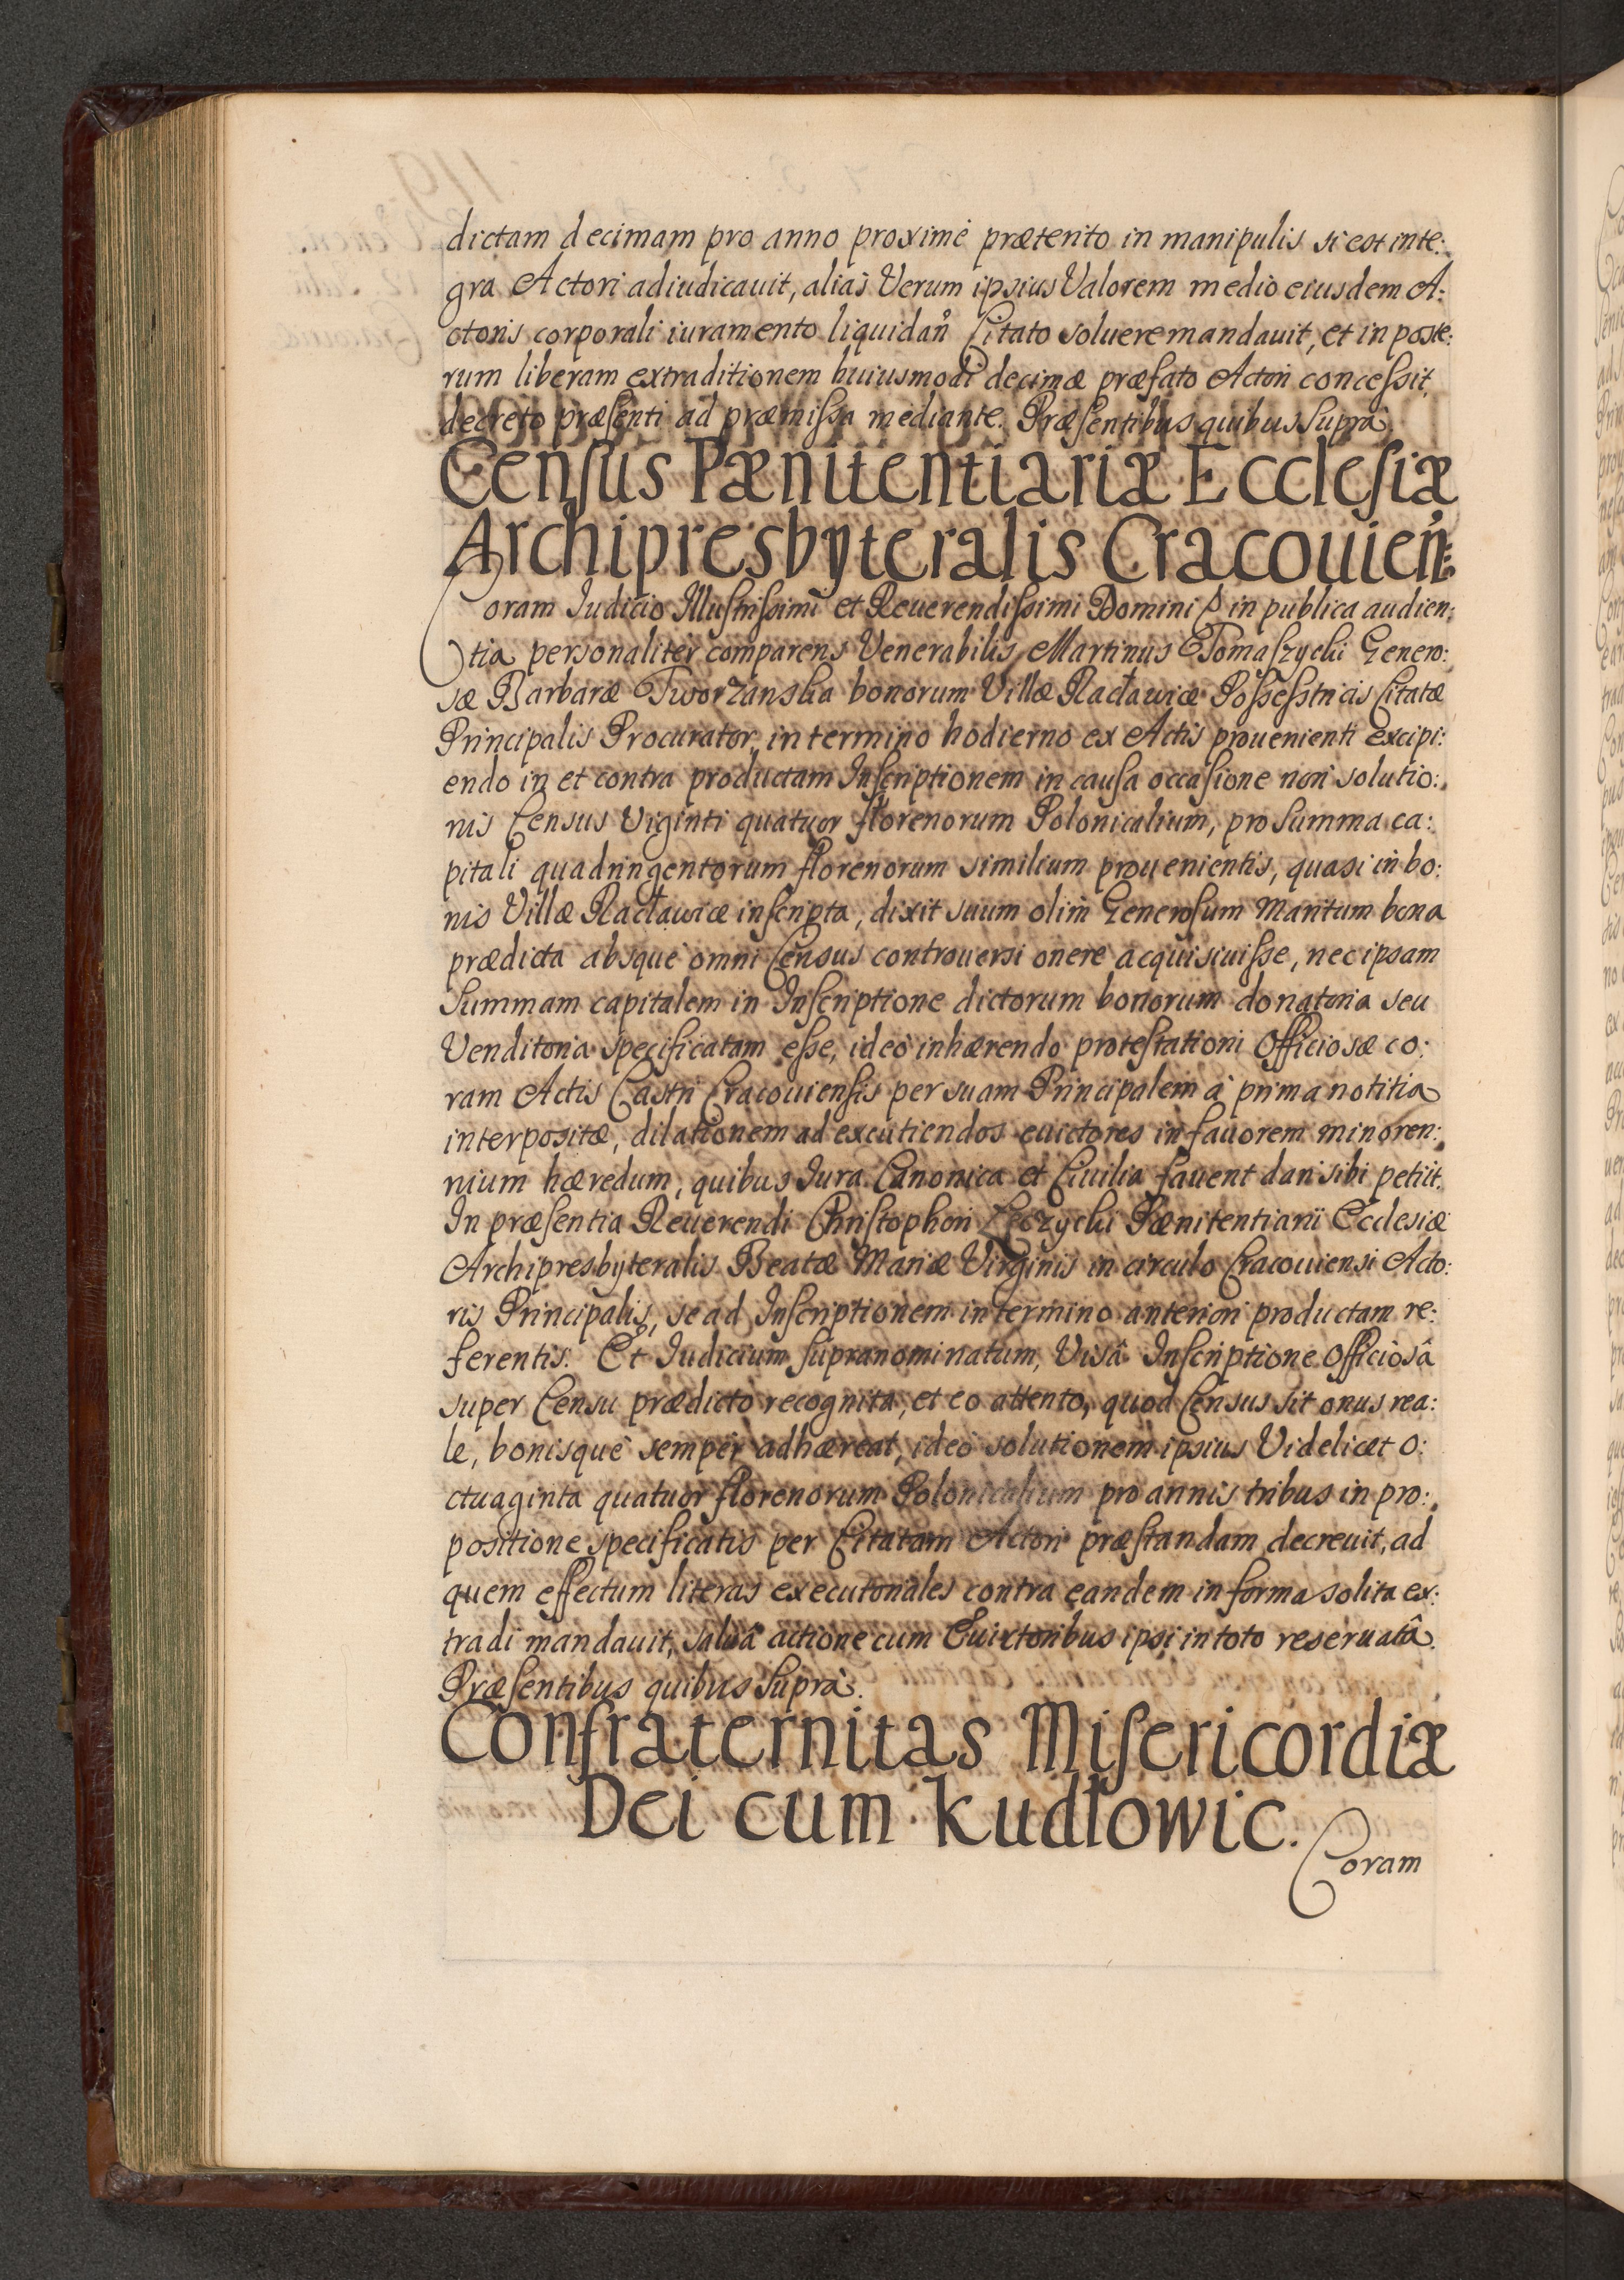 dictam decimam pro anno proximè præterito in manipulis si est inte:
gra Actori adiudicauit, aliàs Verum ipsius Valorem medio eiusdem A:
ctoris corporali iuramento liquidan̄ Citato soluere mandauit, et in poste:
rum liberam extraditionem huiusmodi decimæ præfato Actori conceſsit,
decreto præſenti ad præmiſsa mediante. Præſentibus quibus Suprà.
Cenſus Pænitentiariæ Eccleſiæ
Archipresbyteralis Cracouien̄:
Coram Iudicio Illuſtriſsimi et Reuerendiſsimi Domini in publica audien:
tia personaliter comparens Venerabilis Martinus Tomaſzycki Genero:
sæ Barbaræ Tworzanska bonorum Villæ Racławicæ Poſseſstricis Citatæ
Principalis Procurator, in termino hodierno ex Actis prouenienti excipi:
endo in et contra productam Inſcriptionem in cauſa occaſione non solutio:
nis Census Viginti quatuor florenorum Polonicalium, pro Summa ca:
pitali quadringentorum florenorum similium prouenientis, quasi in bo:
nis Villæ Racławicæ inſcripta, dixit suum olim Generoſum Maritum bona
prædicta absque omni Census controuersi onere acquisiuiſse, nec ipsam
Summam capitalem in Inſcriptione dictorum bonorum donatoria seu
Venditoria specificatam eſse, ideò inhærendo proteſtationi Officiosæ co:
ram Actis Castri Cracouienſis per suam Principalem à prima notitia
interpositæ, dilationem ad excutiendos euictores in fauorem minoren:
nium hæredum, quibus Iura Canonica et Ciuilia fauent dari sibi petiit.
In præſentia Reuerendi Chriſtophori Łęczycki Pænitentiarii Ecclesiæ
Archipresbyteralis Beatæ Mariæ Virginis in circulo Cracouiensi Acto:
ris Principalis, se ad Inſcriptionem in termino anteriori productam re:
ferentis. Et Iudicium supranominatum, Visâ Inſcriptione Officiosâ
super Censu prædicto recognita, et eo attento, quod Census sit onus rea:
le, bonisque semper adhæreat, ideò solutionem ipsius Videlicet o:
ctuaginta quatuor florenorum Polonicalium pro annis tribus in pro:
positione specificatis per Citatam Actori præſtandam decreuit, ad
quem effectum literas executoriales contra eandem in forma solita ex:
tradi mandauit, saluâ actione cum Euictoribus ipsi in toto reseruatâ.
Præſentibus quibus Suprà.
Confraternitas Miſericordiæ
Dei cum Kudłowic.
Coram